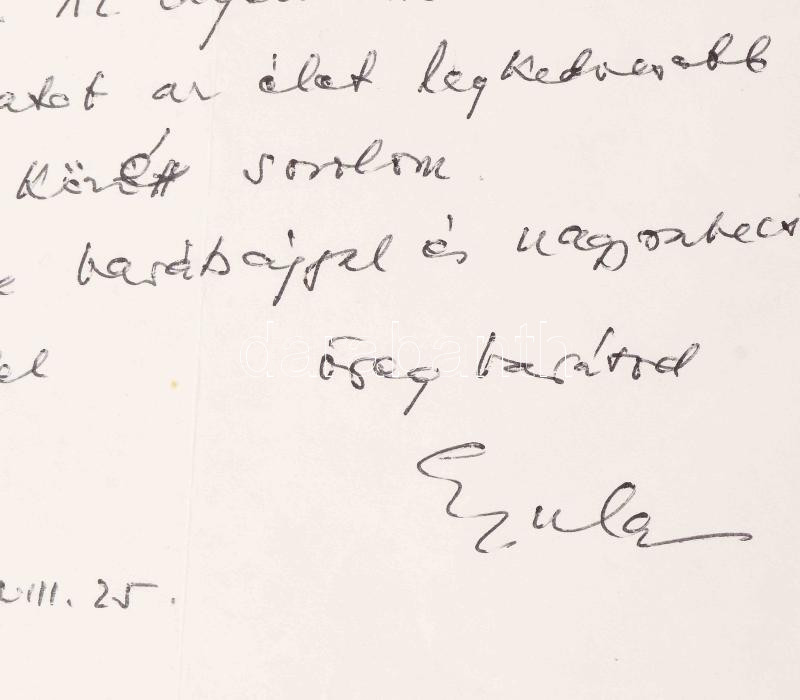 az élet legkedvesebb
között sorolom
barátsággal és nagyrabecs
el öreg barátod
Gyula
VIII. 25.
darabanth